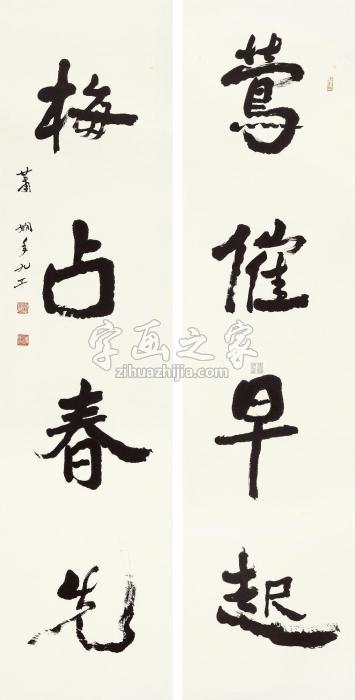 莺催早起
梅占春先
萧娴年九工
字画之家
zihuazhijia.com